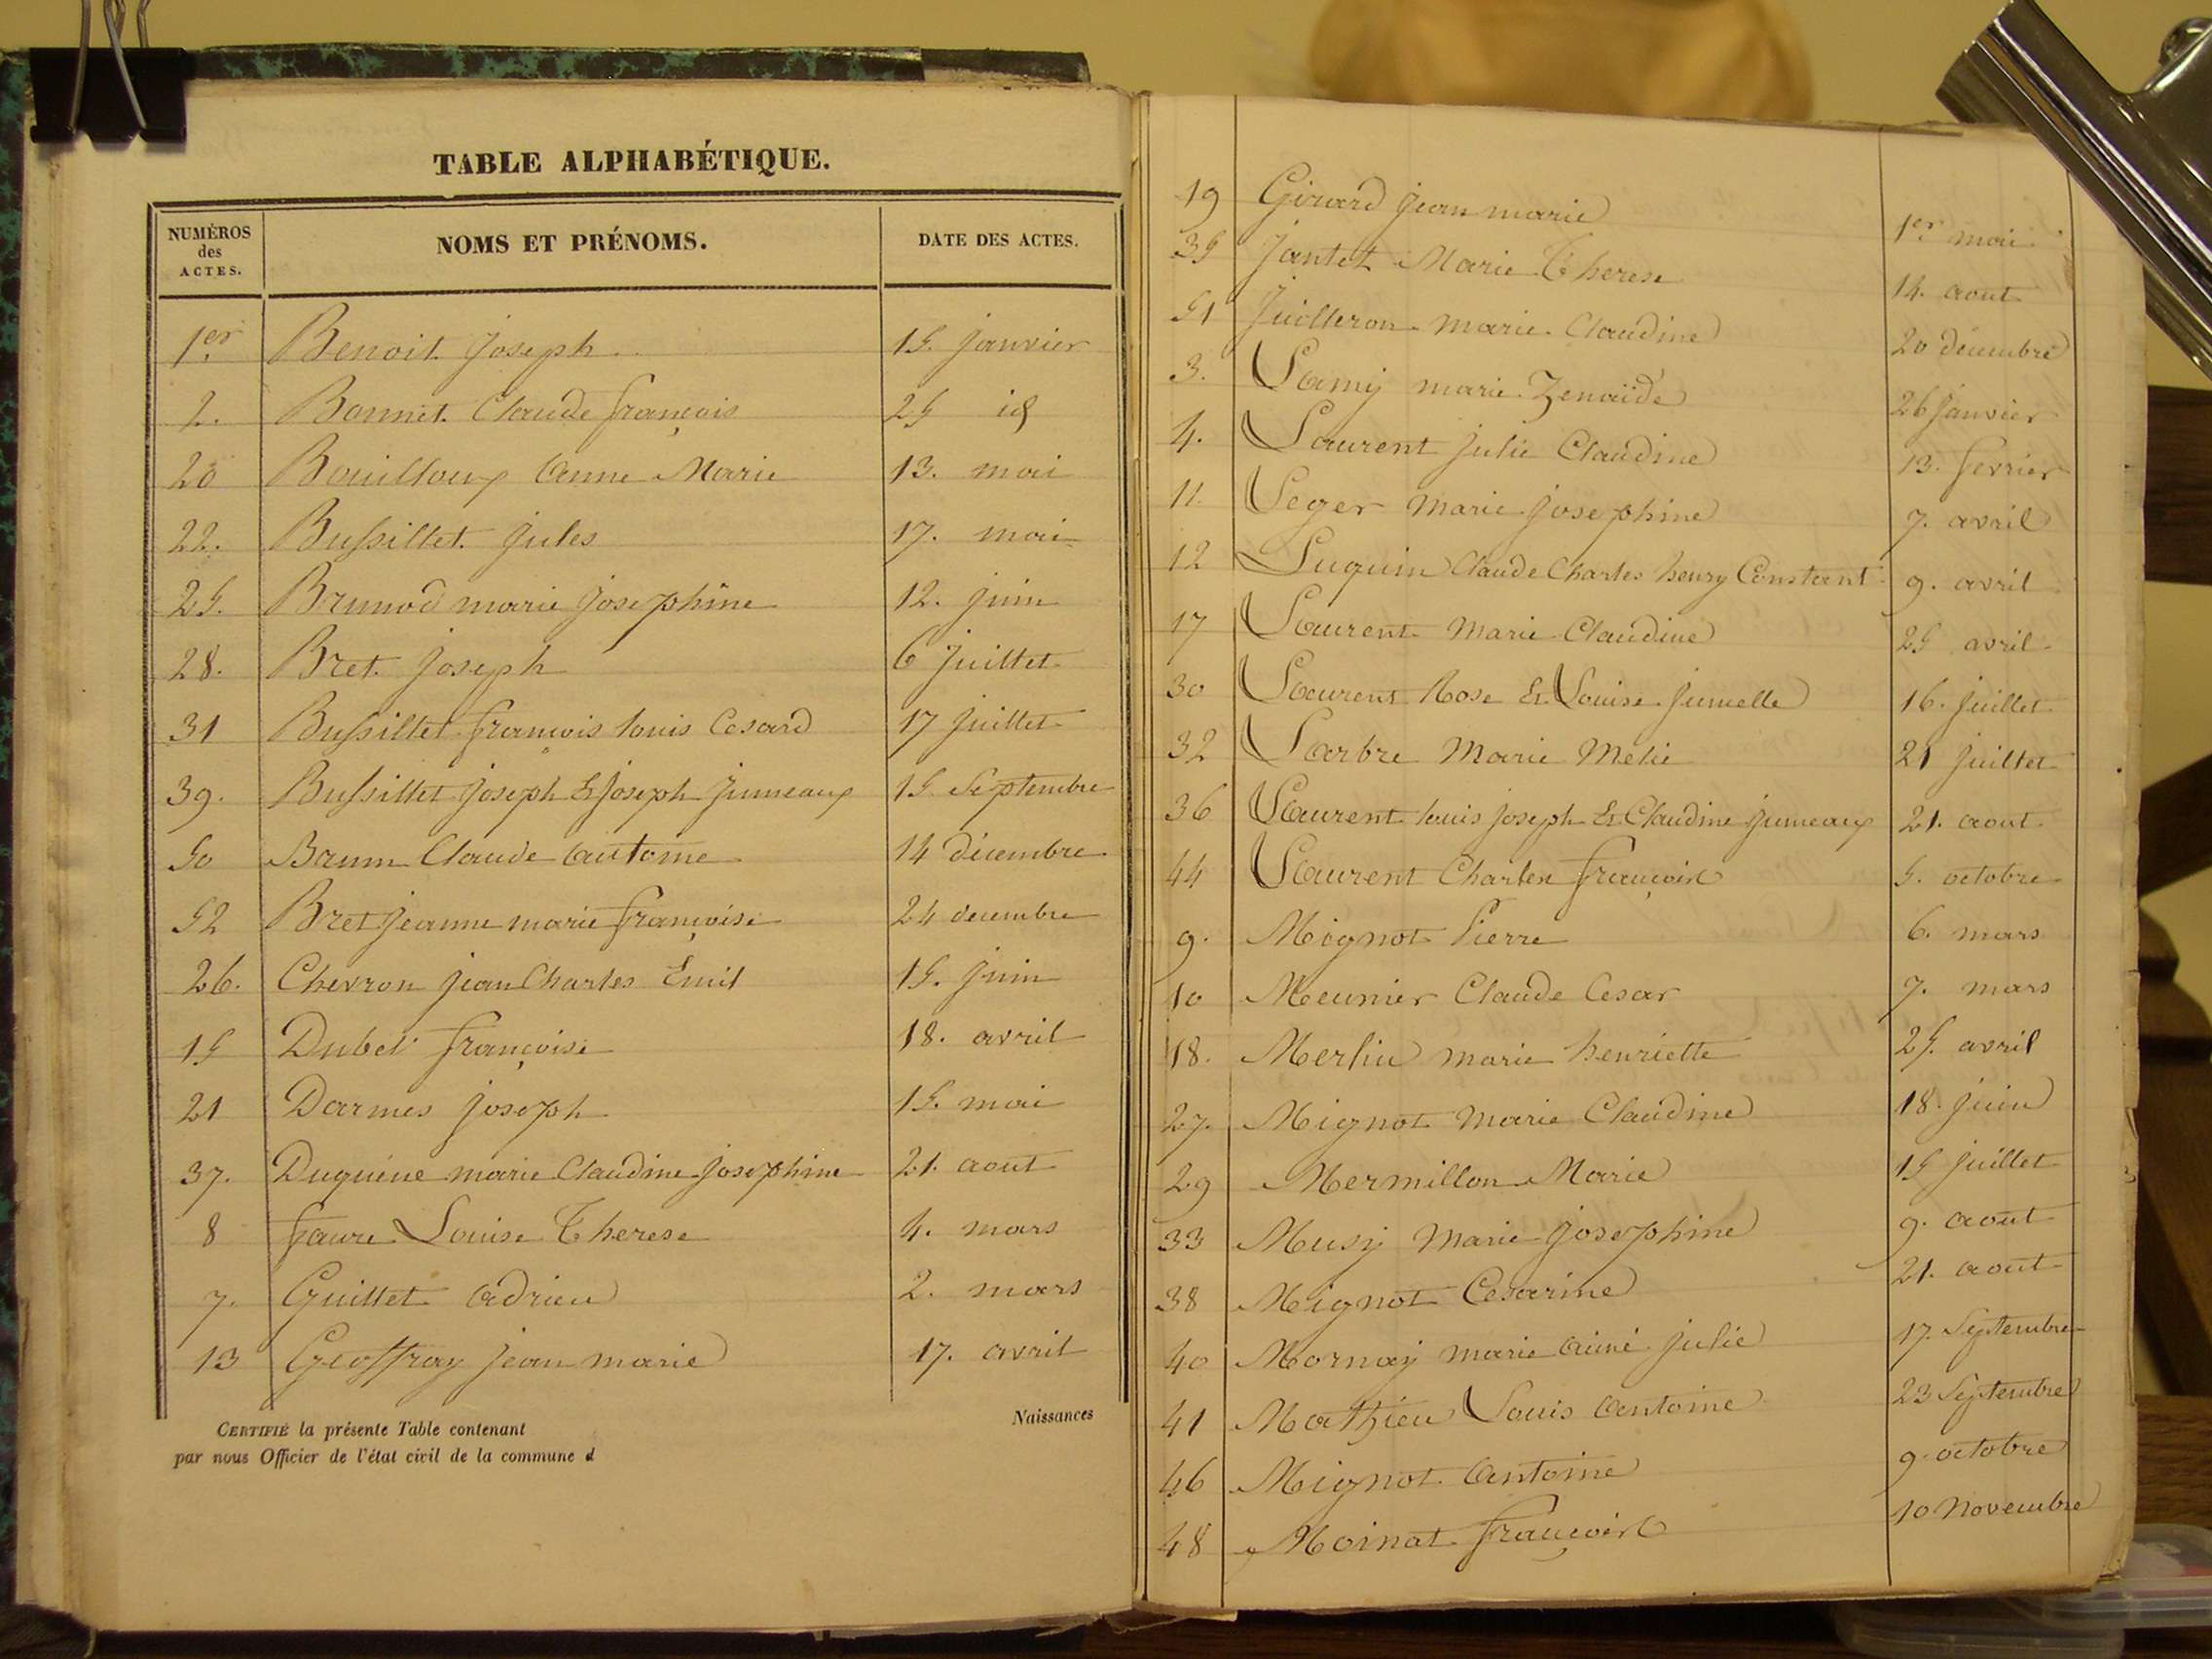 TABLE ALPHABÉTIQUE.
NUMÉROS des ACTES. NOMS ET PRÉNOMS. DATE DES ACTES.
1er Benoit Joseph 15. janvier
2. Bonnet Claude françois 25 id
20 Bouilloux Anne Marie 13. mai
22. Bussillet Jules 17. mai
25. Brunod marie josephine 12. juin
28. Bret Joseph 6 juillet
31 Bussillet françois louis Cesard 17 juillet
39. Bussillet joseph Et joseph jumeaux 15 Septembre
50 Claude antoine 14 décembre
52 Bret jeanne marie françoise 24 decembre
26. Chevron jean Charles Emil 15. juin
15 Dubet françoise 18. avril
21 Darmes joseph 15. mai
37. Duquéne marie Claudine josephine 21. aout
8 faure Louise Therese 4. mars
7. Guillet adrien 2. mars
13 Geoffray jean marie 17. avril
CERTIFIÉ la présente Table contenant Naissances
par nous Officier de l'état civil de la commune d
19 Girard jean marie 1er mai
35 Jantet Marie Therese 14. aout
51 Juilleron marie Claudine 20 décembre
3. Lamy marie Zenaïde 26 janvier
4. Laurent julie Claudine 13. fevrier
11. Leger marie josephine 7. avril
12 Luquin Claude Charles henry Constant 9. avril
17 Laurent marie Claudine 25 avril
30 Laurent Rose Et Louise jumelle 16. juillet
32 Larbre Marie Melie 21 juillet
36 Laurent louis joseph Et Claudine jumeaux 21. aout
44 Laurent Charles françois 5. octobre
9. Mignot Pierre 6. mars
10 Meunier Claude Cesar 7. mars
18. Merlin marie henriette 25. avril
27. Mignot Marie Claudine 18. juin
29 Mermillon Marie 15 juillet
33 Musy Marie josephine 9. aout
38 Mignot Cesarine 21. aout
40 Mornay marie aimé julie 17. Septembre
41 Mathieu Louis antoine 23 Septembre
46 Mignot antoine 9. octobre
48 Moinat françois 10 Novembre